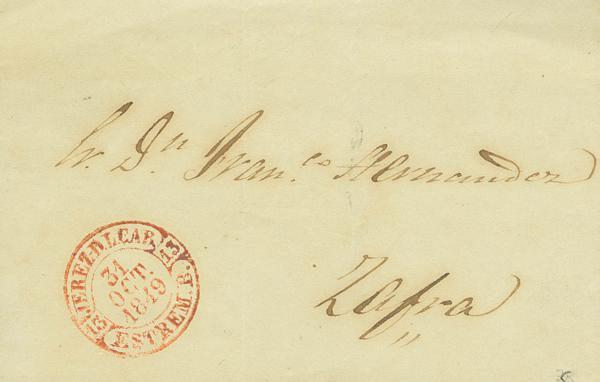 Sr. Dn. Franco. Hernandez
Zafra
JEREZ D.L.CAB.
31
OCT.
1849
ESTREM.B.